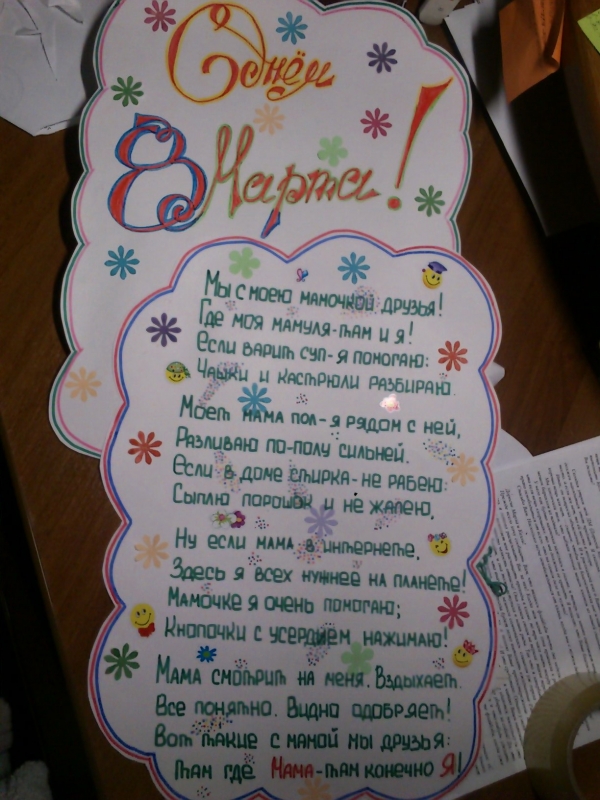 С днём
8 Марта!
Мы с моею мамочкой друзья!
Где моя мамуля-там и я!
Если варит суп-я помогаю:
Чашки и кастрюли разбираю.
Моет мама пол-я рядом с ней,
Разливаю по-полу сильней.
Если в доме стирка-не рабею:
Сыплю порошок и не жалею,
Ну если мама в интернете,
Здесь я всех нужнее на планете!
Мамочке я очень помогаю;
Кнопочки с усердием нажимаю!
Мама смотрит на меня. Вздыхает.
Все понятно. Видно одобряет!
Вот такие с мамой мы друзья:
там где Мама-там конечно Я!